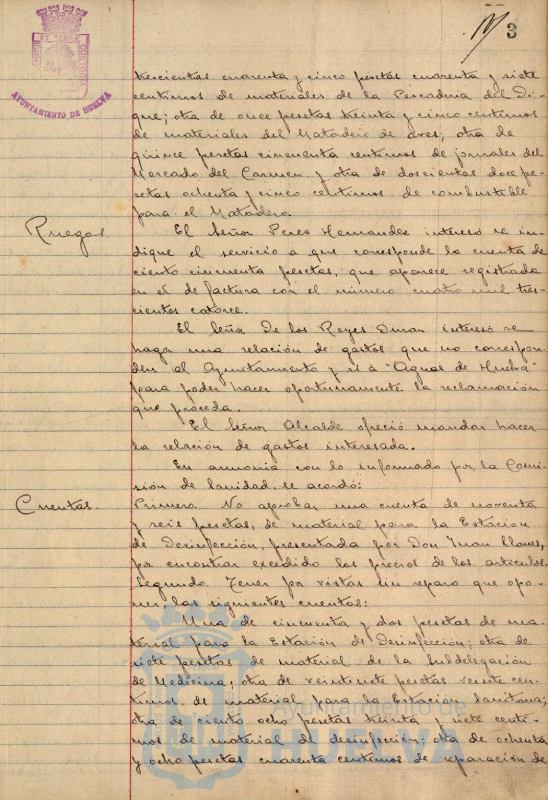 3
AYUNTAMIENTO DE HUELVA
trescientas cuarenta y cinco pesetas cuarenta y siete
centimos de materiales de la Pescaderia del Di-
que; otra de once pesetas treinta y cinco centimos
de materiales del Matadero de aves; otra de
quince pesetas cincuenta centimos de jornales del
Mercado del Carmen y otra de doscientas doce pe-
setas ochenta y cinco centimos de combustible
para el Matadero.
Ruegos.
El Señor Peres Hernandez interesó se in-
dique el servicio a que corresponde la cuenta de
ciento cincuenta pesetas, que aparece registrada
en el de factura con el número cuatro mil tres-
cientos catorce.
El Señor De los Reyes Duran interesó se
haga una relación de gastos que no correspon-
den al Ayuntamiento y si á "Aguas de Huelva"
para poder hacer oportunamente la reclamación
que proceda.
El Señor Alcalde ofreció mandar hacer
la relación de gastos interesada.
En armonia con lo informado por la Comi-
sión de Sanidad, se acordó:
Cuentas.
Primero. No aprobar una cuenta de noventa
y seis pesetas, de material para la Estación
de Desinfección, presentada por Don Juan Llanes,
por encontrar excedido los precios de los articulos.
Segundo. Tener por vistas sin reparo que opo-
ner, las siguientes cuentas:
Una de cincuenta y dos pesetas de ma-
terial para la Estación de Desinfección; otra de
siete pesetas de material de la Subdelegación
de Medicina; otra de veintisiete pesetas veinte cen-
timos de material para la Estación Sanitaria;
otra de ciento ocho pesetas treinta y siete centi-
mos de material de desinfección; otra de ochenta
y ocho pesetas cuarenta centimos de reparación de
Ayuntamiento de
HUELVA